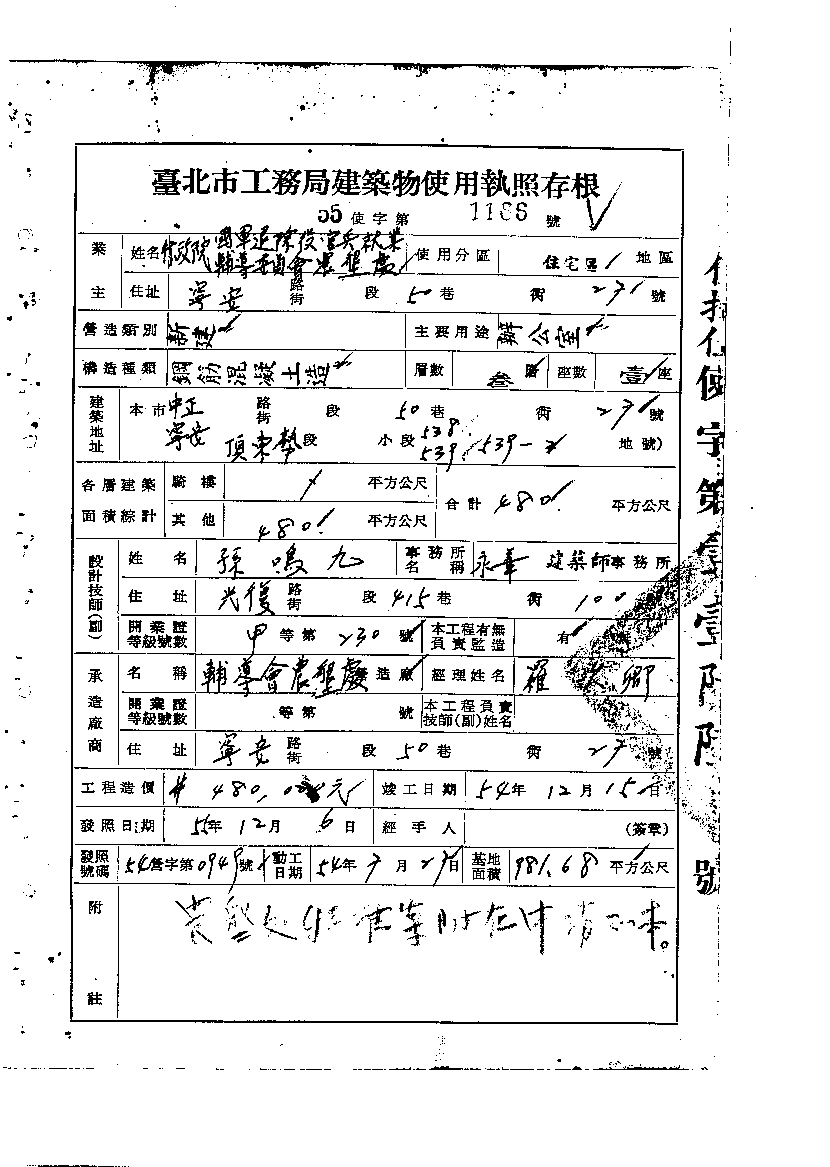 臺北市工務局建築物使用執照存根
55使字第 1186 號
業主 姓名 行政院國軍退除役官兵就業輔導委員會農墾處 使用分區 住宅區 地區
住址 寧安 路街 段 50巷 衖 27 號
營造類別 新建 主要用途 辦公室
構造種類 鋼筋混凝土造 層數 叁層 座數 壹座
建築地址 本市中正 路街 段 50巷 衖 27 號
寧安 頂東勢段 小段 538 539 539- 地號)
各層建築面積綜計 騎樓 平方公尺 合計 480 平方公尺
其他 480 平方公尺
設計技師(副) 姓名 孫鳴九 事務所名稱 永華 建築師事務所
住址 光復 路街 段 415巷 衖 100
開業證等級號數 甲等第 230 號 本工程有無負責監造 有
承造廠商 名稱 輔導會農墾處 造廠 經理姓名 羅 卿
開業證等級號數 等第 號 本工程負責技師(副)姓名
住址 寧安 路街 段 50巷 衖 27 號
工程造價 480,000元 竣工日期 54年12月15日
發照日期 55年12月6日 經手人 (簽章)
發照號碼 54營字第0949號 動工日期 54年7月27日 基地面積 981.68 平方公尺
附註
使字第壹壹
號